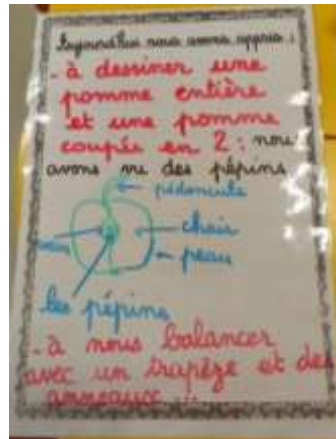 Aujourd'hui nous avons appris :
- à dessiner une
pomme entière
et une pomme
coupée en 2 : nous
avons vu des pépins
pédoncule
chair
peau
les pépins
- à nous balancer
avec un trapèze et des
anneaux ...